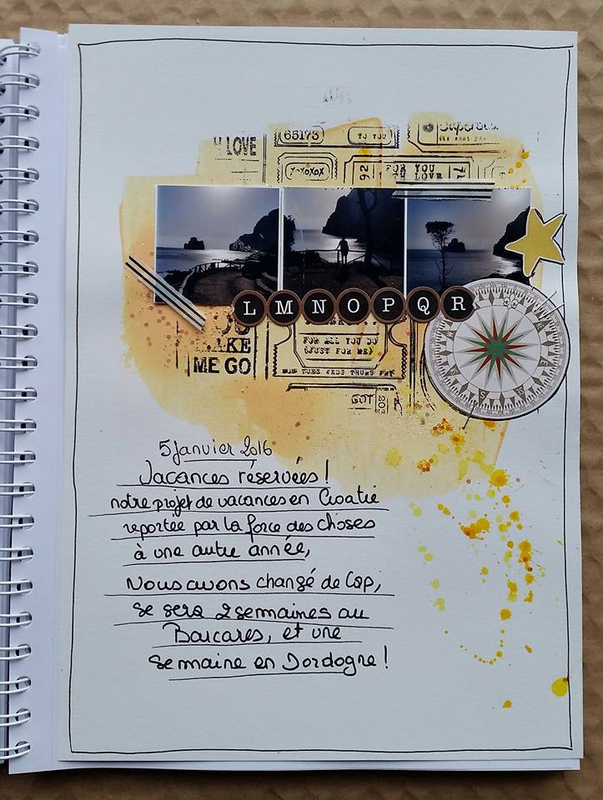 U LOVE
65173
TO YOU
Supersta
XOXOXOX
92
FOR YOU
TO LOVE
17
L M N O P Q R
MAKE
ME GO
FOR ALL YOU DO
(JUST FOR ME)
MON TUES WEDS THURS FRI
GOT
5 Janvier 2016
Vacances réservées !
notre projet de vacances en Croatie
reportée par la force des choses
à une autre année,
Nous avons changé de Cap,
se sera 2 semaines au
Barcares, et une
semaine en Dordogne !